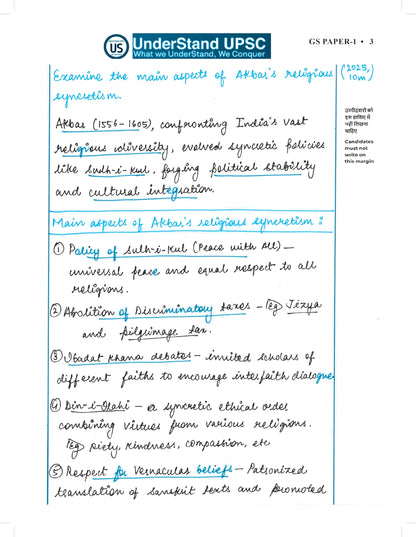 US
UnderStand UPSC
What we UnderStand, We Conquer
GS PAPER-1 • 3
Examine the main aspects of Akbar's religious
syncretism.
(2025,
10m)
उम्मीदवारों को
इस हाशिए में
नहीं लिखना
चाहिए
Candidates
must not
write on
this margin
Akbar (1556-1605), confronting India's vast
religious diversity, evolved syncretic policies
like Sulh-i-kul, forging political stability
and cultural integration.
Main aspects of Akbar's religious syncretism :
① Policy of Sulh-i-kul (Peace with All) —
universal peace and equal respect to all
religions.
② Abolition of Discriminatory taxes - Eg Jizya
and pilgrimage tax.
③ Ibadat Khana debates - invited scholars of
different faiths to encourage interfaith dialogue
④ Din-i-Ilahi - a syncretic ethical order
combining virtues from various religions.
Eg piety, kindness, compassion, etc
⑤ Respect for Vernacular beliefs - Patronized
translation of Sanskrit texts and promoted